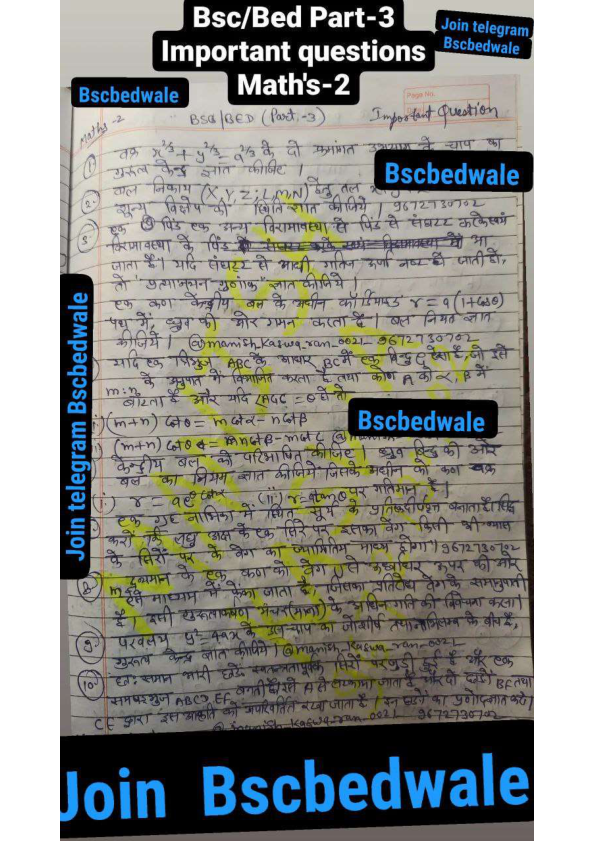 Bsc/Bed Part-3
Important questions
Math's-2
Join telegram
Bscbedwale
Bscbedwale
Page No.
Maths -2
BSC/BED (Part.-3) Important Question
① वक्र x^2/3 + y^2/3 = a^2/3 के दो क्रमागत के चाप का
गुरुत्व केन्द्र ज्ञात कीजिए ।
Bscbedwale
2. बल निकाय (X, Y, Z; L, M, N) हेतु तल
शून्य विक्षेप की स्थिति ज्ञात कीजिये । 9672730702
3. एक पिंड एक अन्य विरामावस्था के पिंड से संघट्ट करके स्वयं
विरामावस्था के पिंड में आ
जाता है। यदि संघट्ट से आधी गतिज ऊर्जा नष्ट हो जाती हो,
तो प्रत्यानयन गुणांक ज्ञात कीजिये ।
एक कण केन्द्रीय बल के अधीन कार्डियोइड r = a(1+cosθ)
पथ में, ध्रुव की ओर गमन करता है। बल नियम ज्ञात
कीजिये । @manish_kaswa_ran_0021_9672730702
यदि एक त्रिभुज ABC के आधार BC में एक बिन्दु ऐसा है, जो इसे
m:n के अनुपात में विभाजित करता है तथा कोण A को α, β में
बांटता है और यदि ∠AGC = θ हो तो
(i) (m+n) cotθ = m cotα - n cotβ
(m+n) cotθ = n cotβ - m cot
Bscbedwale
केन्द्रीय बल को परिभाषित कीजिए ध्रुव बिन्दु की ओर
बल का नियम ज्ञात कीजिये जिसके अधीन कोई कण वक्र
(i) r = ae^θ cotα (ii) r = a tanθ पर गतिमान है।
एक ग्रह नाभिका में स्थित सूर्य के
करो कि लघु अक्ष के एक सिरे पर इसका वेग किसी भी व्यास
के सिरों पर के वेग का ज्यामितिय माध्य होगा। 9672730702
8. m द्रव्यमान के एक कण को वेग से ऊर्ध्वाधर ऊपर की ओर
ऐसे माध्यम में फेंका जाता है, जिसका प्रतिरोध वेग के समानुपाती
है। इसी गुरुत्वाकर्षण के अधीन गति की विवेचना करो।
9. परवलय y² = 4ax के उस चाप का जो शीर्ष तथा नाभिलम्ब के बीच है,
गुरुत्व केन्द्र ज्ञात कीजिये। @manish_kaswa_ran_0021
10. छः समान भारी छड़ें स्वतन्त्रतापूर्वक सिरों पर जुड़ी हुई हैं और एक
समषट्भुज ABCDEF बनाती हैं इसे A से लटकाया जाता है और दो छड़ों BF तथा
CE द्वारा इस आकृति को अपरिवर्तित रखा जाता है। इन छड़ों का प्रणोद ज्ञात करो।
kaswa_ran_0021 9672730702
Join telegram Bscbedwale
Join Bscbedwale